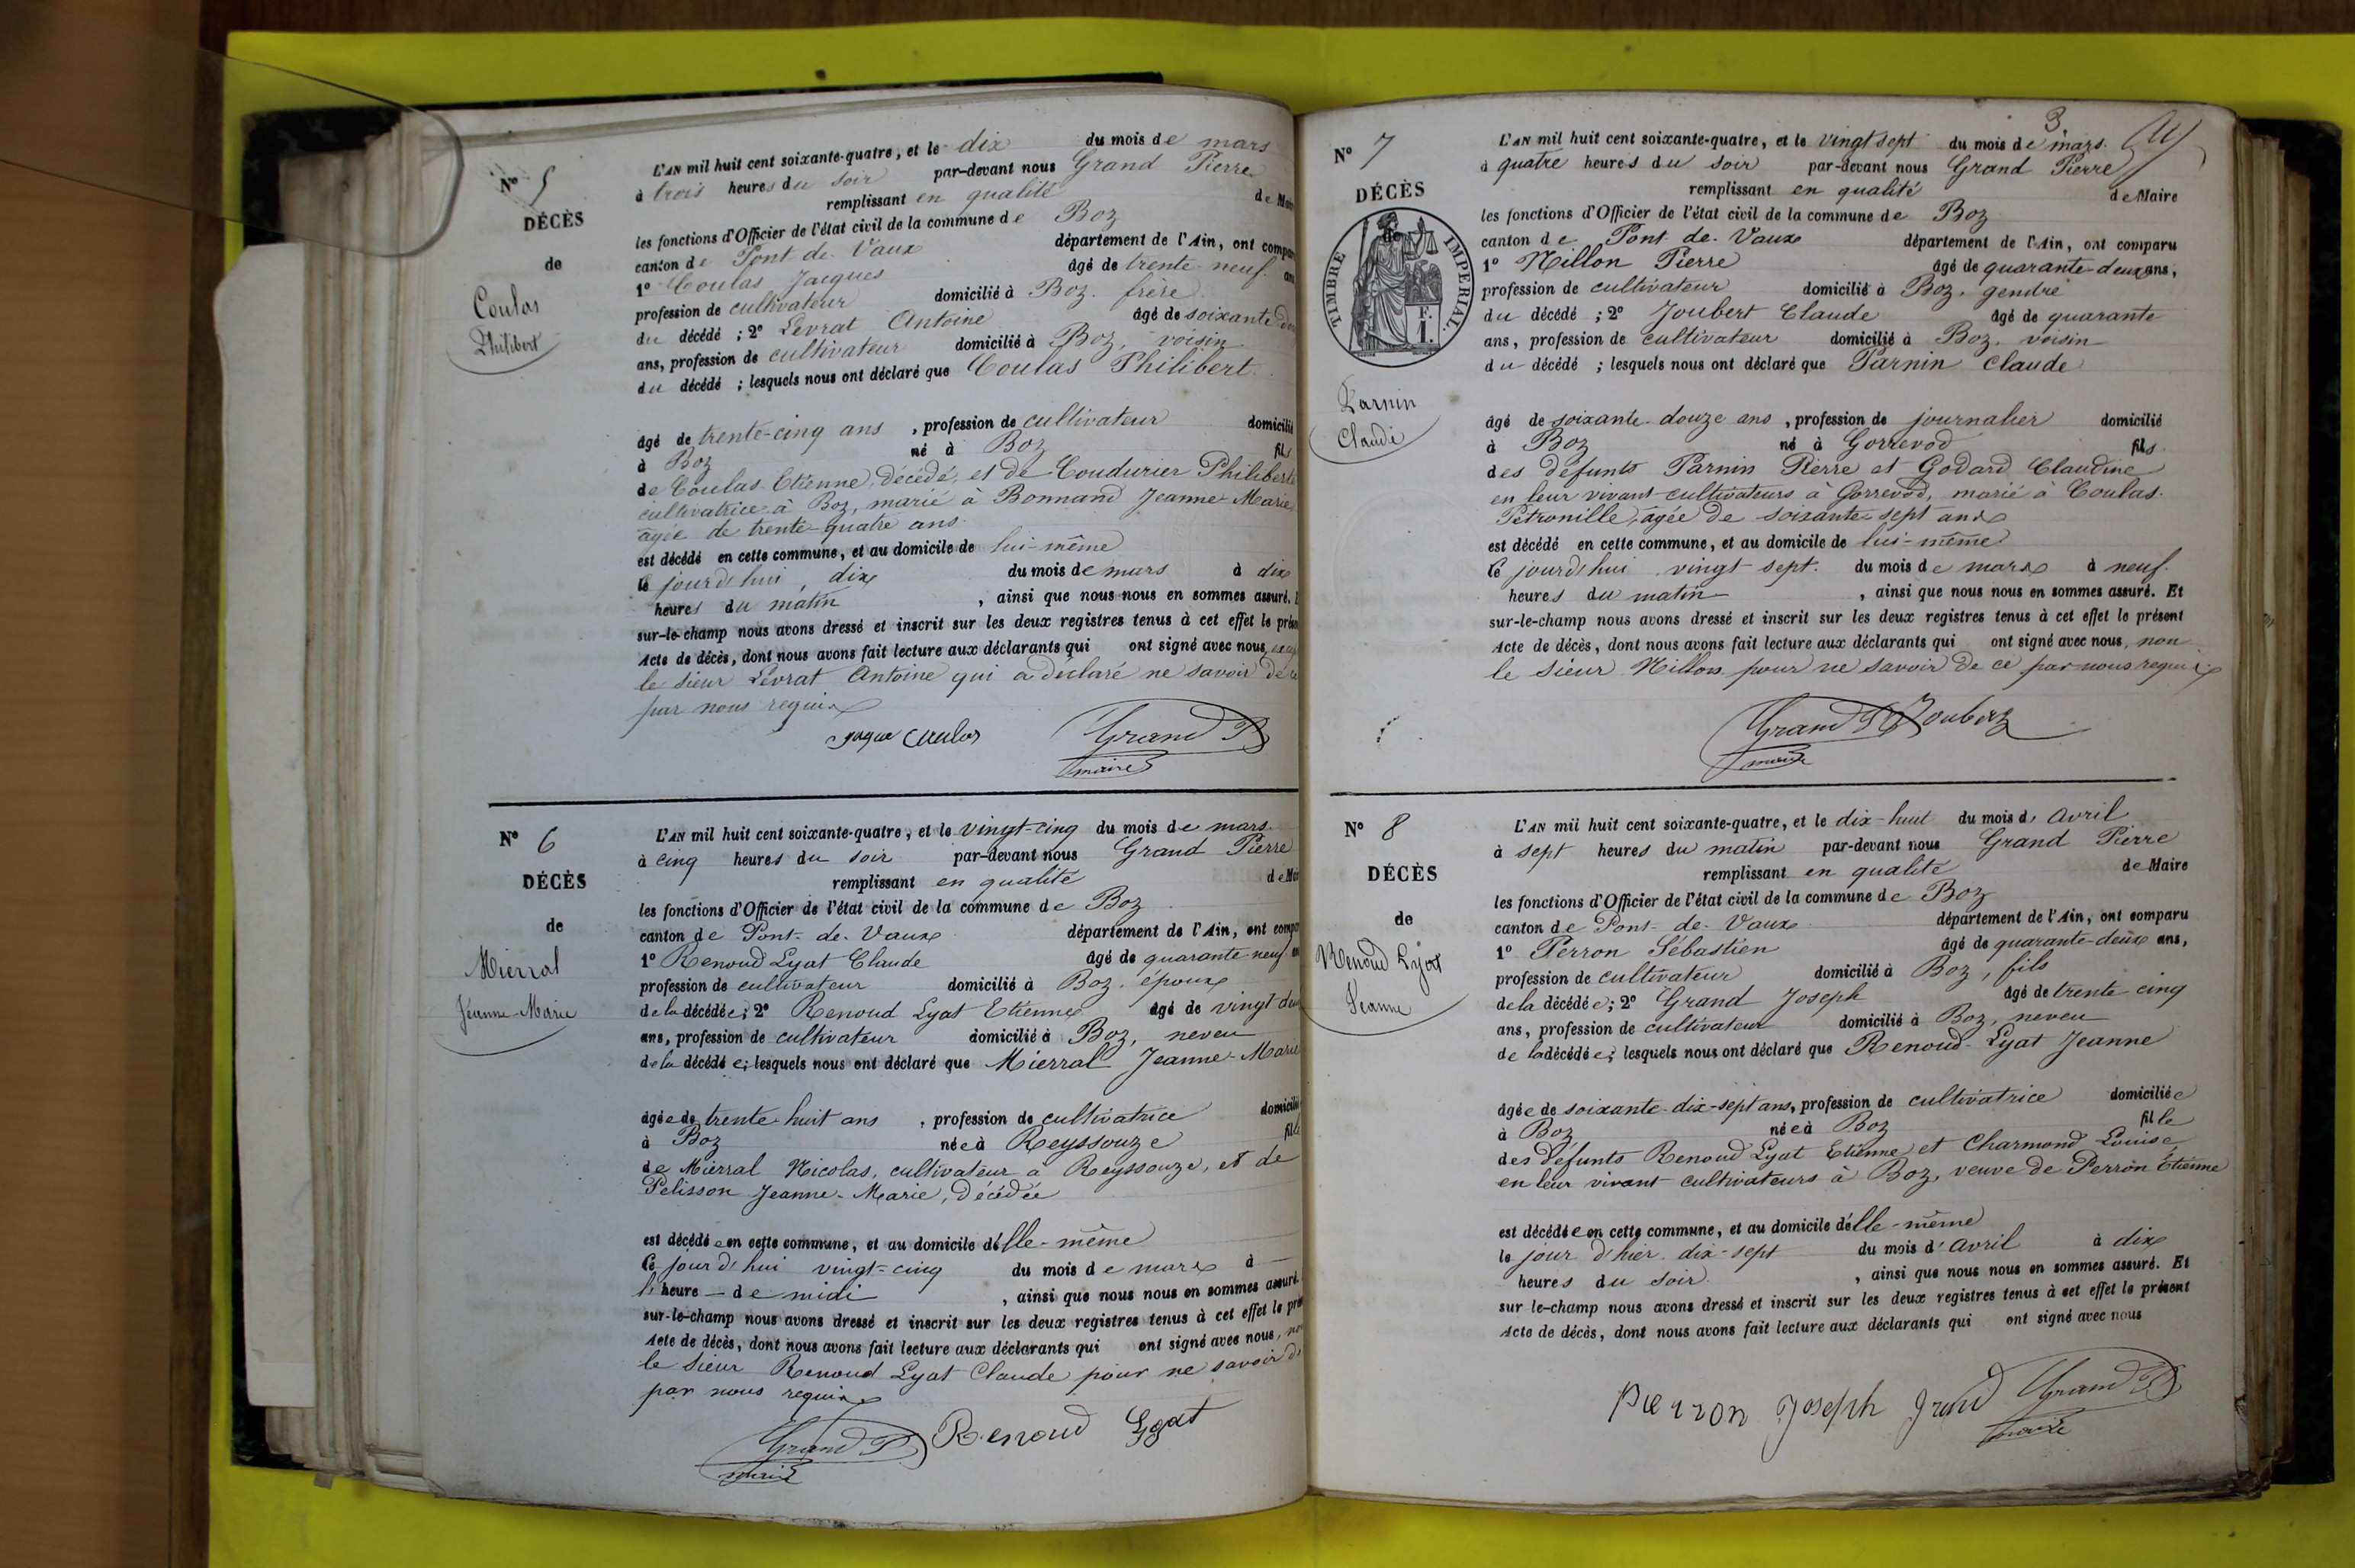 N° 5
DÉCÈS
de
Coulas
Philibert
L'AN mil huit cent soixante-quatre, et le dix du mois de mars
à trois heures du soir par-devant nous Grand Pierre
remplissant en qualité de Mair
les fonctions d'Officier de l'état civil de la commune de Boz
canton de Pont de Vaux département de l'Ain, ont compar
1° Coulas Jacques âgé de trente-neuf ans
profession de cultivateur domicilié à Boz. frère
du décédé ; 2° Levrat Antoine âgé de soixante
ans, profession de cultivateur domicilié à Boz, voisin
du décédé ; lesquels nous ont déclaré que Coulas Philibert
âgé de trente-cinq ans , profession de cultivateur domicilié
à Boz né à Boz fils
de Coulas Etienne, décédé, et de Coudurier Philiberte
cultivatrice à Boz, marié à Bonnand Jeanne-Marie
âgée de trente-quatre ans
est décédé en cette commune, et au domicile de lui-même
le jourd'hui, dix du mois de mars à dix
heures du matin , ainsi que nous nous en sommes assuré. E
sur-le-champ nous avons dressé et inscrit sur les deux registres tenus à cet effet le présen
Acte de décès, dont nous avons fait lecture aux déclarants qui ont signé avec nous
le sieur Levrat Antoine qui a déclaré ne savoir de ce
par nous requis
Grand P
maire
N° 6
DÉCÈS
de
Mierral
Jeanne-Marie
L'AN mil huit cent soixante-quatre, et le vingt-cinq du mois de mars
à cinq heures du soir par-devant nous Grand Pierre
remplissant en qualité de Mai
les fonctions d'Officier de l'état civil de la commune de Boz
canton de Pont-de-Vaux département de l'Ain, ont compa
1° Renoud Lyat Claude âgé de quarante-neuf an
profession de cultivateur domicilié à Boz, époux
de la décédée; 2° Renoud Lyat Etienne âgé de vingt-deux
ans, profession de cultivateur domicilié à Boz, neveu
de la décédée; lesquels nous ont déclaré que Mierral Jeanne-Marie
âgée de trente-huit ans , profession de cultivatrice domicilié
à Boz née à Reyssouze fille
de Mierral Nicolas, cultivateur à Reyssouze, et de
Pelisson Jeanne-Marie, décédée
est décédée en cette commune, et au domicile d'elle-même
le jourd'hui vingt-cinq du mois de mars à
l'heure de midi , ainsi que nous nous en sommes assuré.
sur-le-champ nous avons dressé et inscrit sur les deux registres tenus à cet effet le prés
Acte de décès, dont nous avons fait lecture aux déclarants qui ont signé avec nous, non
le sieur Renoud Lyat Claude pour ne savoir de
par nous requis
Grand P
maire
Renoud Lyat
3
N° 7
DÉCÈS
de
TIMBRE IMPÉRIAL.
F. I.
Parnin
Claude
L'AN mil huit cent soixante-quatre, et le vingt sept du mois de mars.
à quatre heures du soir par-devant nous Grand Pierre
remplissant en qualité de Maire
les fonctions d'Officier de l'état civil de la commune de Boz
canton de Pont-de-Vaux département de l'Ain, ont comparu
1° Millon Pierre âgé de quarante-deux ans,
profession de cultivateur domicilié à Boz, gendre
du décédé ; 2° Joubert Claude âgé de quarante
ans, profession de cultivateur domicilié à Boz, voisin
du décédé ; lesquels nous ont déclaré que Parnin Claude
âgé de soixante-douze ans , profession de journalier domicilié
à Boz né à Gorrevod fils
des défunts Parnin Pierre et Godard Claudine
en leur vivant cultivateurs à Gorrevod, marié à Coulas
Pétronille, âgée de soixante-sept ans
est décédé en cette commune, et au domicile de lui-même
le jourd'hui vingt-sept du mois de mars à neuf
heures du matin , ainsi que nous nous en sommes assuré. Et
sur-le-champ nous avons dressé et inscrit sur les deux registres tenus à cet effet le présent
Acte de décès, dont nous avons fait lecture aux déclarants qui ont signé avec nous, non
le sieur Millon pour ne savoir de ce par nous requis
Grand P Joubert
maire
N° 8
DÉCÈS
de
Renoud Lyat
Jeanne
L'AN mil huit cent soixante-quatre, et le dix-huit du mois d'Avril
à sept heures du matin par-devant nous Grand Pierre
remplissant en qualité de Maire
les fonctions d'Officier de l'état civil de la commune de Boz
canton de Pont-de-Vaux département de l'Ain, ont comparu
1° Perron Sébastien âgé de quarante-deux ans,
profession de cultivateur domicilié à Boz, fils
de la décédée; 2° Grand Joseph âgé de trente-cinq
ans, profession de cultivateur domicilié à Boz, neveu
de la décédée; lesquels nous ont déclaré que Renoud-Lyat Jeanne
âgée de soixante-dix-sept ans, profession de cultivatrice domiciliée
à Boz née à Boz fille
des défunts Renoud Lyat Etienne et Charmond Louise
en leur vivant cultivateurs à Boz, veuve de Perron Étienne
est décédée en cette commune, et au domicile d'elle-même
le jour d'hier dix-sept du mois d'Avril à dix
heures du soir , ainsi que nous nous en sommes assuré. Et
sur le-champ nous avons dressé et inscrit sur les deux registres tenus à cet effet le présent
Acte de décès, dont nous avons fait lecture aux déclarants qui ont signé avec nous
Pierron Joseph Grand Grand P
maire